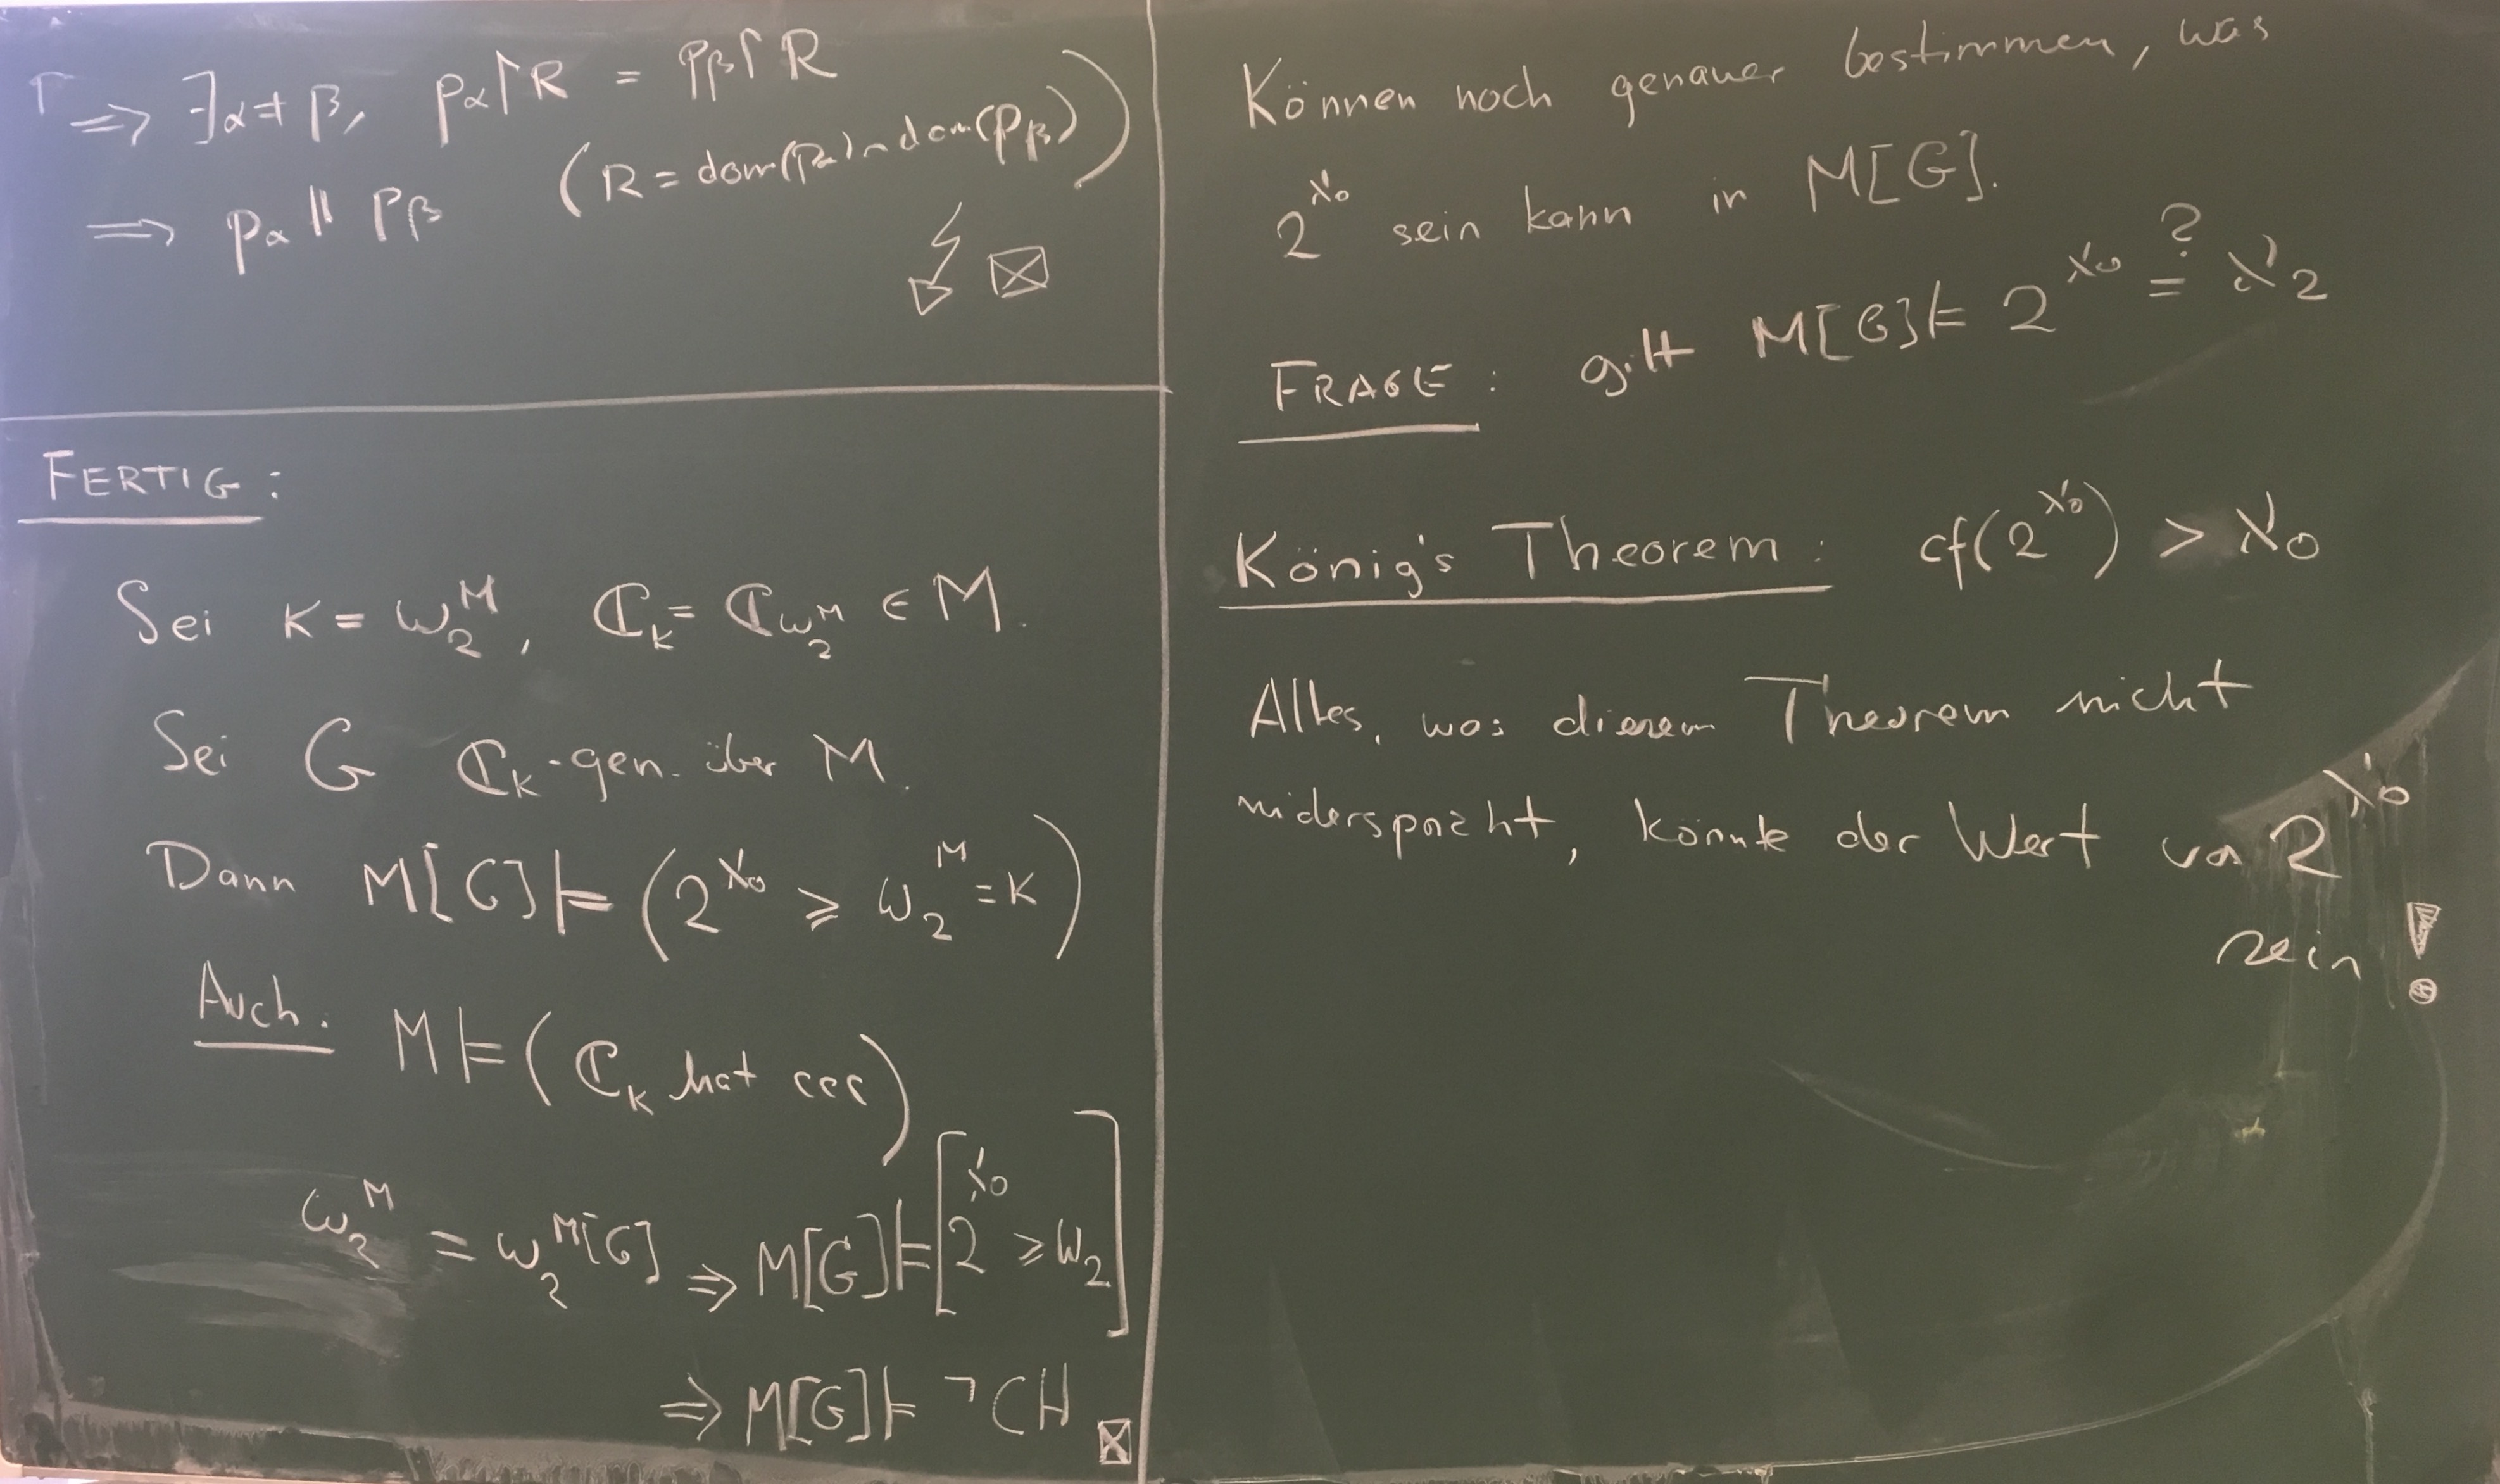 ⇒ ∃α≠β, pα↾R = pβ↾R
(R = dom(pα) ∩ dom(pβ))
⇒ pα ∥ pβ
FERTIG:
Sei κ = ω₂^M, ℂ_κ = ℂ_{ω₂^M} ∈ M.
Sei G ℂ_κ-gen. über M.
Dann M[G] ⊨ (2^ℵ₀ ≥ ω₂^M = κ)
Auch: M ⊨ (ℂ_κ hat ccc)
ω₂^M = ω₂^M[G] ⇒ M[G] ⊨ [2^ℵ₀ ≥ ω₂]
⇒ M[G] ⊨ ¬CH ☒
Können noch genauer bestimmen, was
2^ℵ₀ sein kann in M[G].
FRAGE: gilt M[G] ⊨ 2^ℵ₀ =? ℵ₂
König's Theorem: cf(2^ℵ₀) > ℵ₀
Alles, was diesem Theorem nicht
widerspricht, könnte der Wert von 2^ℵ₀
sein!